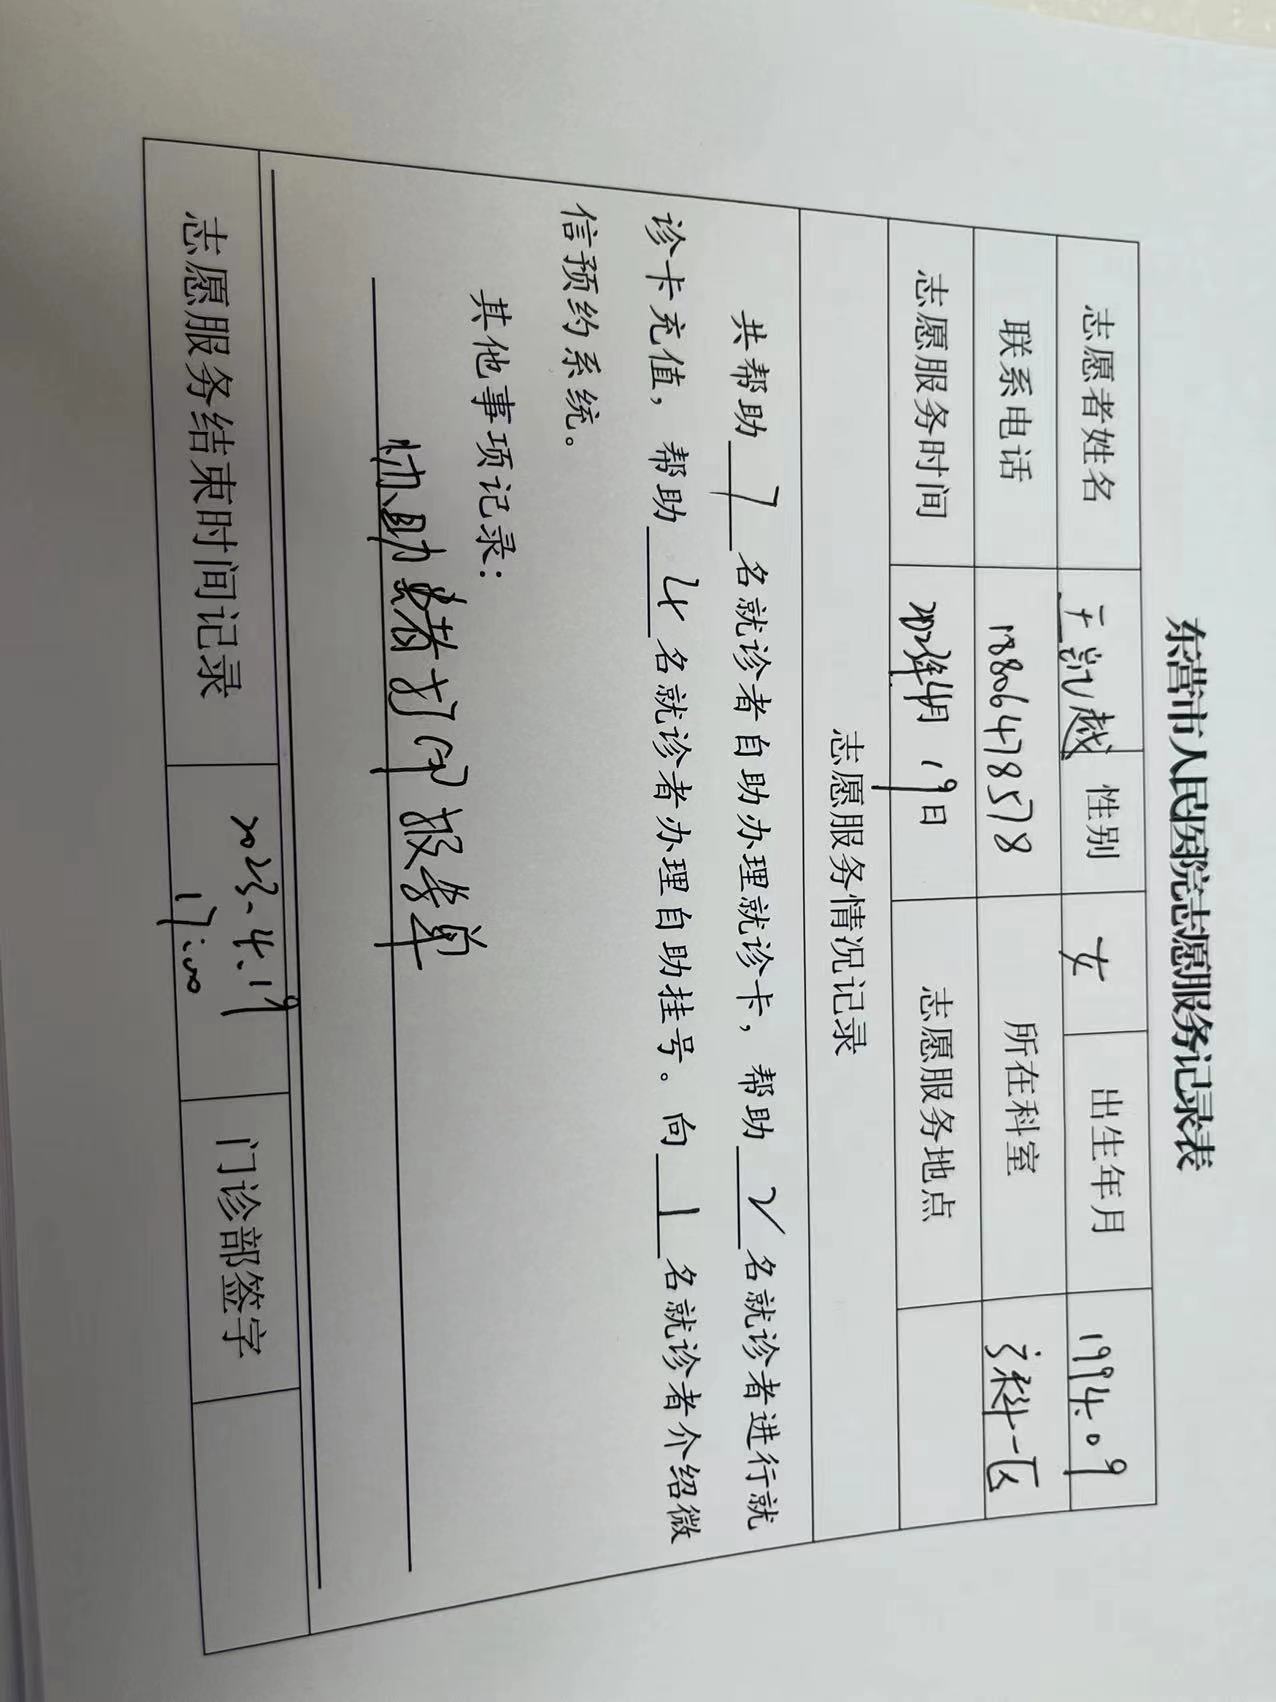 东营市人民医院志愿服务记录表
志愿者姓名 王凯越 性别 女 出生年月 1994.09
联系电话 18806478578 所在科室 科一区
志愿服务时间 2023年4月19日 志愿服务地点
志愿服务情况记录
共帮助 7 名就诊者自助办理就诊卡，帮助 2 名就诊者进行就
诊卡充值，帮助 4 名就诊者办理自助挂号。向 1 名就诊者介绍微
信预约系统。
其他事项记录：
协助患者打印报告单
志愿服务结束时间记录 2023.4.19 门诊部签字
17:00